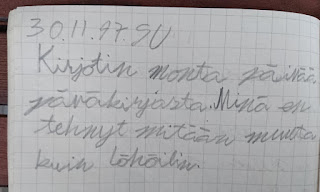 30.11.97 SU
Kirjotin monta päivää
päväkirjasta. Minä en
tehnyt mitään muuta
kuin löhöilin.